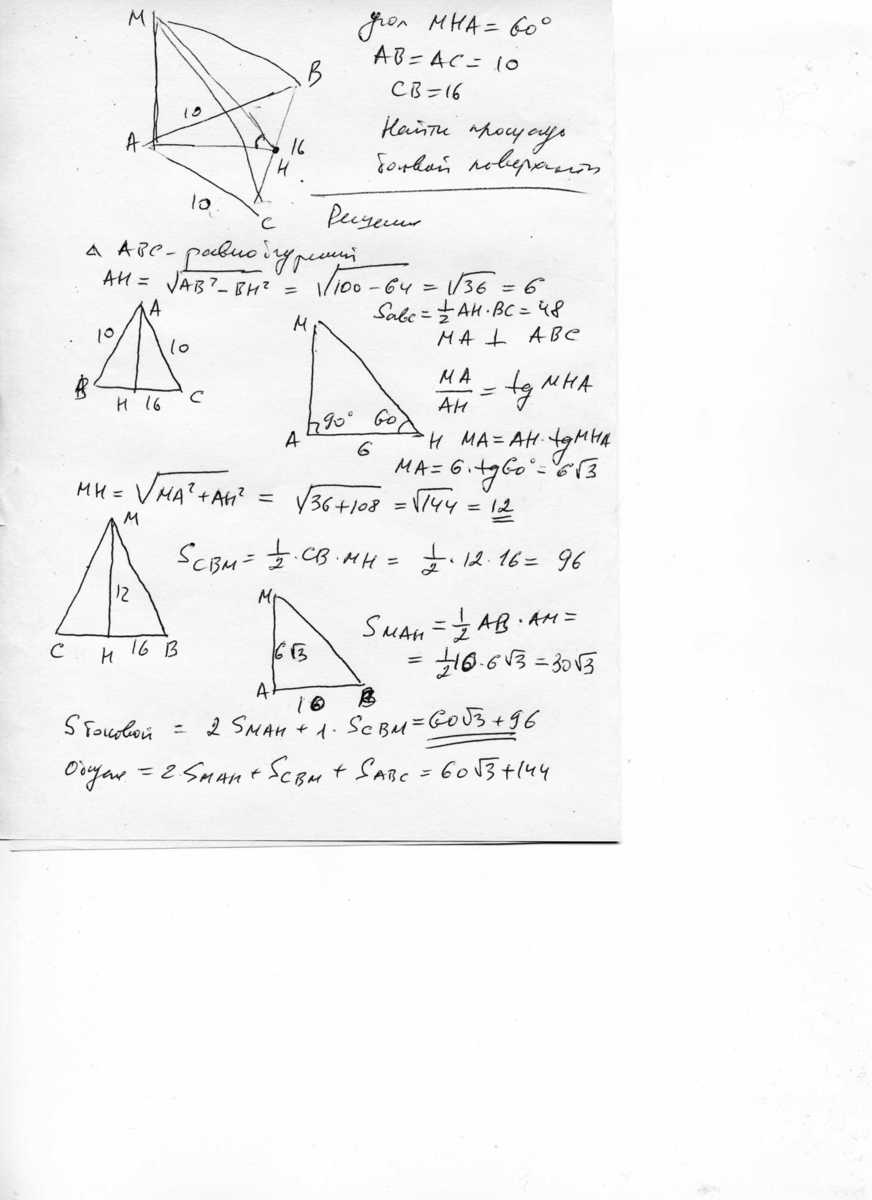 M
B
10
A
16
H
10
C
угол MHA = 60°
AB = AC = 10
CB = 16
Найти площадь
боковой поверхности
Решение
△ ABC - равнобедренный
AH = √AB² - BH² = √100 - 64 = √36 = 6
Sавс = 1/2 AH · BC = 48
A
10
10
B
H 16 C
M
90° 60
A 6 H
MA ⊥ ABC
MA/AH = tg MHA
MA = AH · tg MHA
MA = 6 · tg 60° = 6√3
MH = √MA² + AH² = √36 + 108 = √144 = 12
M
12
C H 16 B
S CBM = 1/2 · CB · MH = 1/2 · 12 · 16 = 96
M
6√3
A
10 B
S MAH = 1/2 AB · AM =
= 1/2 10 · 6√3 = 30√3
S боковой = 2 S MAH + 1 · S CBM = 60√3 + 96
= 2 · S MAH + S CBM + S ABC = 60√3 + 144